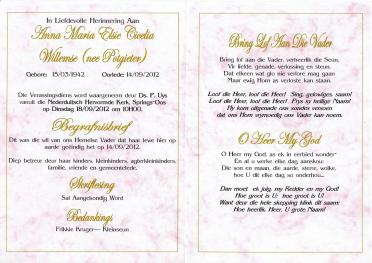 In Liefdevolle Herinnering Aan
Anna Maria Elsie Cicelia
Willemse (nee Potgieter)
Gebore: 15/03/1942 Oorlede: 14/09/2012
Die Verassingsdiens word waargeneem deur Ds. P. Uys
vanuit die Nederduitsch Hervormde Kerk, Springs-Oos
op Dinsdag 18/09/2012 om 10H00.
Begrafnisbrief
Dit was die wil van ons Hemelse Vader dat haar lewe hier op
aarde geëindig het op 14/09/2012.
Diep betreur deur haar kinders, kleinkinders, agterkleinkinders,
familie, vriende en gemeentelede.
Skriflesing
Sal Aangekondig Word
Bedankings
Frikkie Kruger— Kleinseun
Bring Lof Aan Die Vader
Bring lof aan die Vader, verheerlik die Seun,
Vir liefde, genade, verlossing en steun.
Dat elkeen wat glo nie verlore mag gaan
Maar ewig Hom as verloste kan staan.
Loof die Heer, loof die Heer! Sing, gelowiges saam!
Loof die Heer, loof die Heer! Prys sy heilige Naam!
Hy kom uitgenade ons sondes vrewoon
dat ons Hom vrymoedig ons Vader kan noem.
O Heer My God
O Heer my God, as ek in eerbied wonder
En al u werke elke dag aanskou:
Die son en maan, die aarde, sterre, wolke,
hoe U dit elke dag so onderhou...
Dan moet ek juig, my Redder en my God!
Hoe groot is U; hoe groot is U!
Want deur die hele skepping klink dit saam:
Hoe heerlik, Heer, U grote Naam!